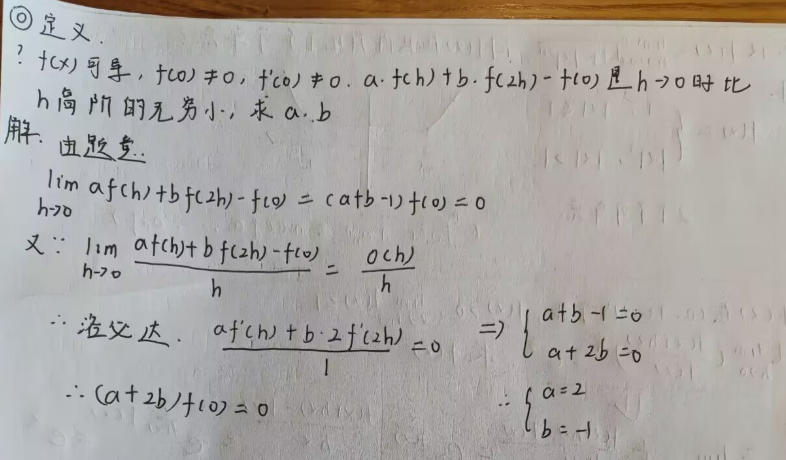 ◎ 定义.
? f(x)可导, f(0)≠0, f'(0)≠0. a·f(h)+b·f(2h)-f(0)是h→0时比
h高阶的无穷小, 求a.b
解. 由题意:
lim h→0 af(h)+bf(2h)-f(0) = (a+b-1)f(0)=0
又∵ lim h→0 (af(h)+bf(2h)-f(0))/h = o(h)/h
∴ 洛必达. (af'(h)+b·2f'(2h))/1 =0 ⇒ { a+b-1=0
a+2b=0
∴ (a+2b)f(0)=0 ∴ { a=2
b=-1